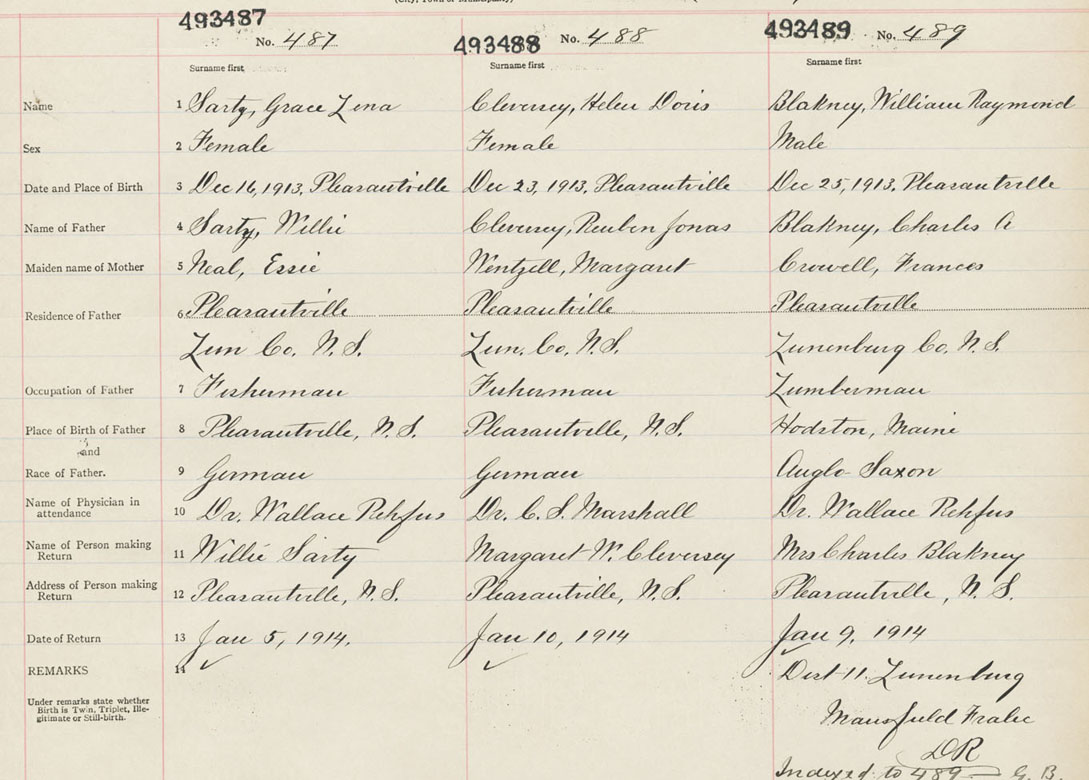 (City, Town or Municipality)
493487 No. 487 493488 No. 488 493489 No. 489
Surname first Surname first Surname first
Name 1 Sarty, Grace Lena Cleversey, Helen Doris Blakney, William Raymond
Sex 2 Female Female Male
Date and Place of Birth 3 Dec 16, 1913, Pleasantville Dec 23, 1913, Pleasantville Dec 25, 1913, Pleasantville
Name of Father 4 Sarty, Willie Cleversey, Reuben Jonas Blakney, Charles A
Maiden name of Mother 5 Neal, Essie Wentzell, Margaret Crowell, Frances
Residence of Father 6 Pleasantville Pleasantville Pleasantville
Lun Co. N.S. Lun. Co. N.S. Lunenburg Co. N.S.
Occupation of Father 7 Fisherman Fisherman Lumberman
Place of Birth of Father 8 Pleasantville, N.S. Pleasantville, N.S. Hodston, Maine
and
Race of Father. 9 German German Anglo Saxon
Name of Physician in
attendance 10 Dr. Wallace Rehfus Dr. C. S. Marshall Dr. Wallace Rehfus
Name of Person making
Return 11 Willie Sarty Margaret W. Cleversey Mrs Charles Blakney
Address of Person making
Return 12 Pleasantville, N.S. Pleasantville, N.S. Pleasantville, N.S.
Date of Return 13 Jan 5, 1914. Jan 10, 1914 Jan 9, 1914
REMARKS 14 Dist 11. Lunenburg
Under remarks state whether
Birth is Twin, Triplet, Ille-
gitimate or Still-birth.
Mansfield Fralic
DR
Indexed to 489 — G. B.